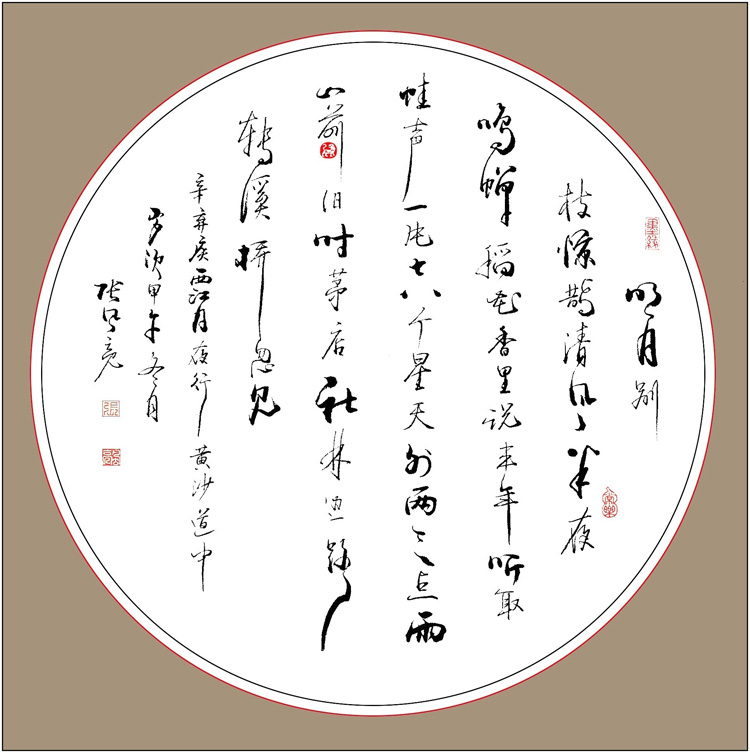 明月别
枝惊鹊清风半夜
鸣蝉稻花香里说丰年听取
蛙声一片七八个星天外两三点雨
山前旧时茅店社林边路
转溪桥忽见
辛弃疾西江月夜行黄沙道中
岁次甲午冬月
张